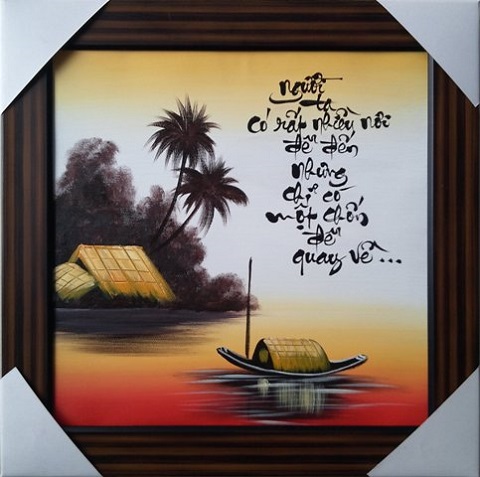 người
ta
có rất nhiều nơi
để đến
nhưng
chỉ có
một chốn
để
quay về...